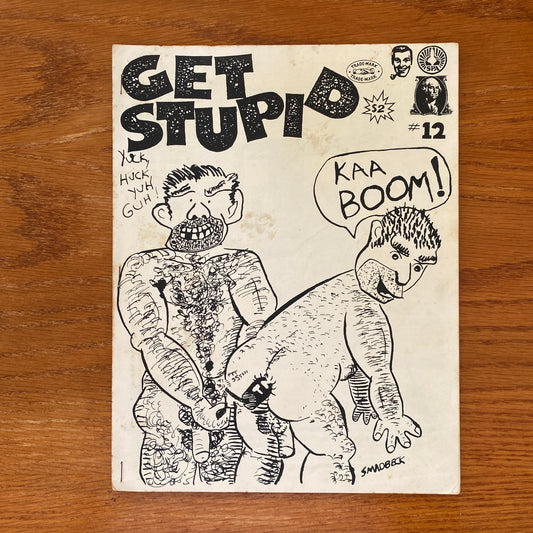 GET
STUPID
TRADE-MARK
TRADE-MARK
$2
#12
YUCK,
HUCK,
YUH,
GUH!
KAA
BOOM!
SMADBECK